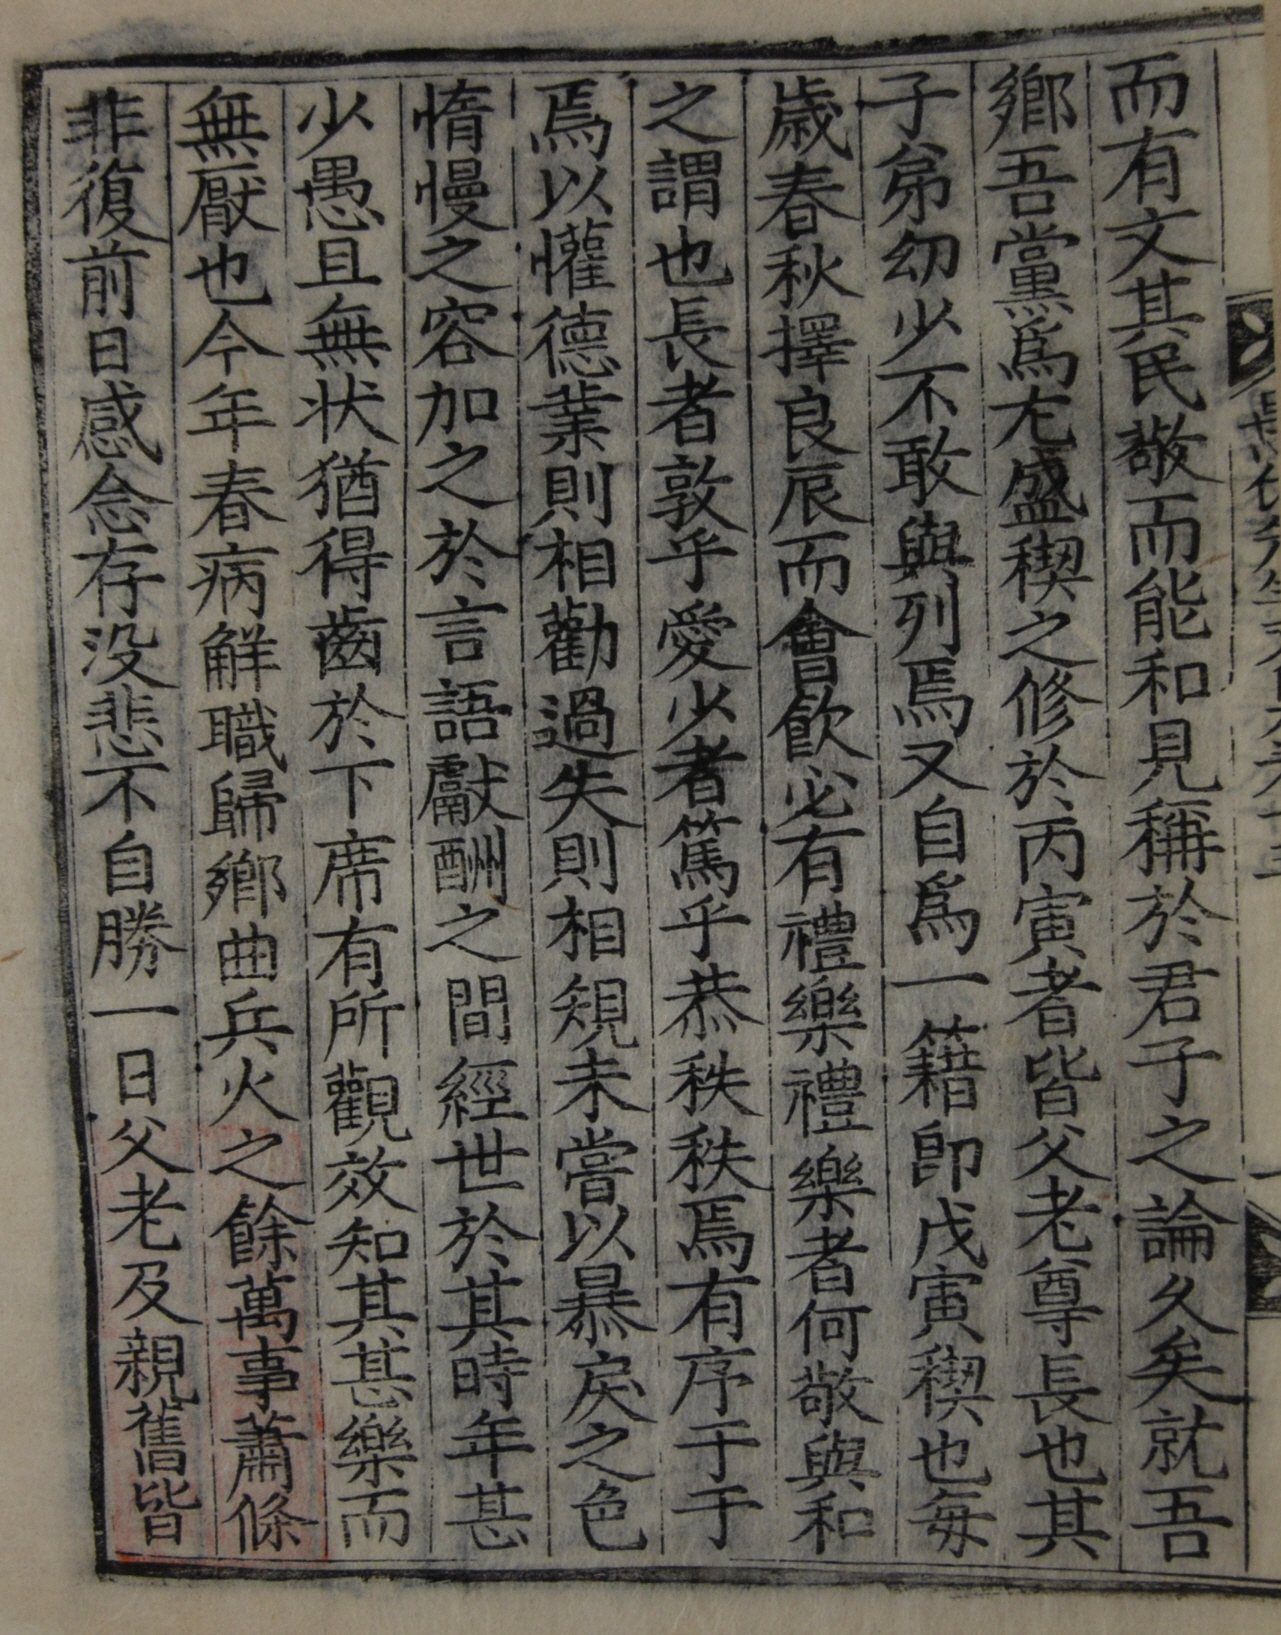 而有文其民敬而能和見稱於君子之論久矣就吾
鄉吾黨爲尤盛稧之修於丙寅者皆父老尊長也其
子弟幼少不敢與列焉又自爲一籍卽戊寅稧也每
歲春秋擇良辰而會飮必有禮樂禮樂者何敬與和
之謂也長者敦乎愛少者篤乎恭秩秩焉有序于于
焉以懽德業則相勸過失則相規未嘗以暴戾之色
惰慢之容加之於言語獻酬之間經世於其時年甚
少愚且無狀猶得齒於下席有所觀效知其甚樂而
無厭也今年春病解職歸鄉曲兵火之餘萬事蕭條
非復前日感念存沒悲不自勝一日父老及親舊皆